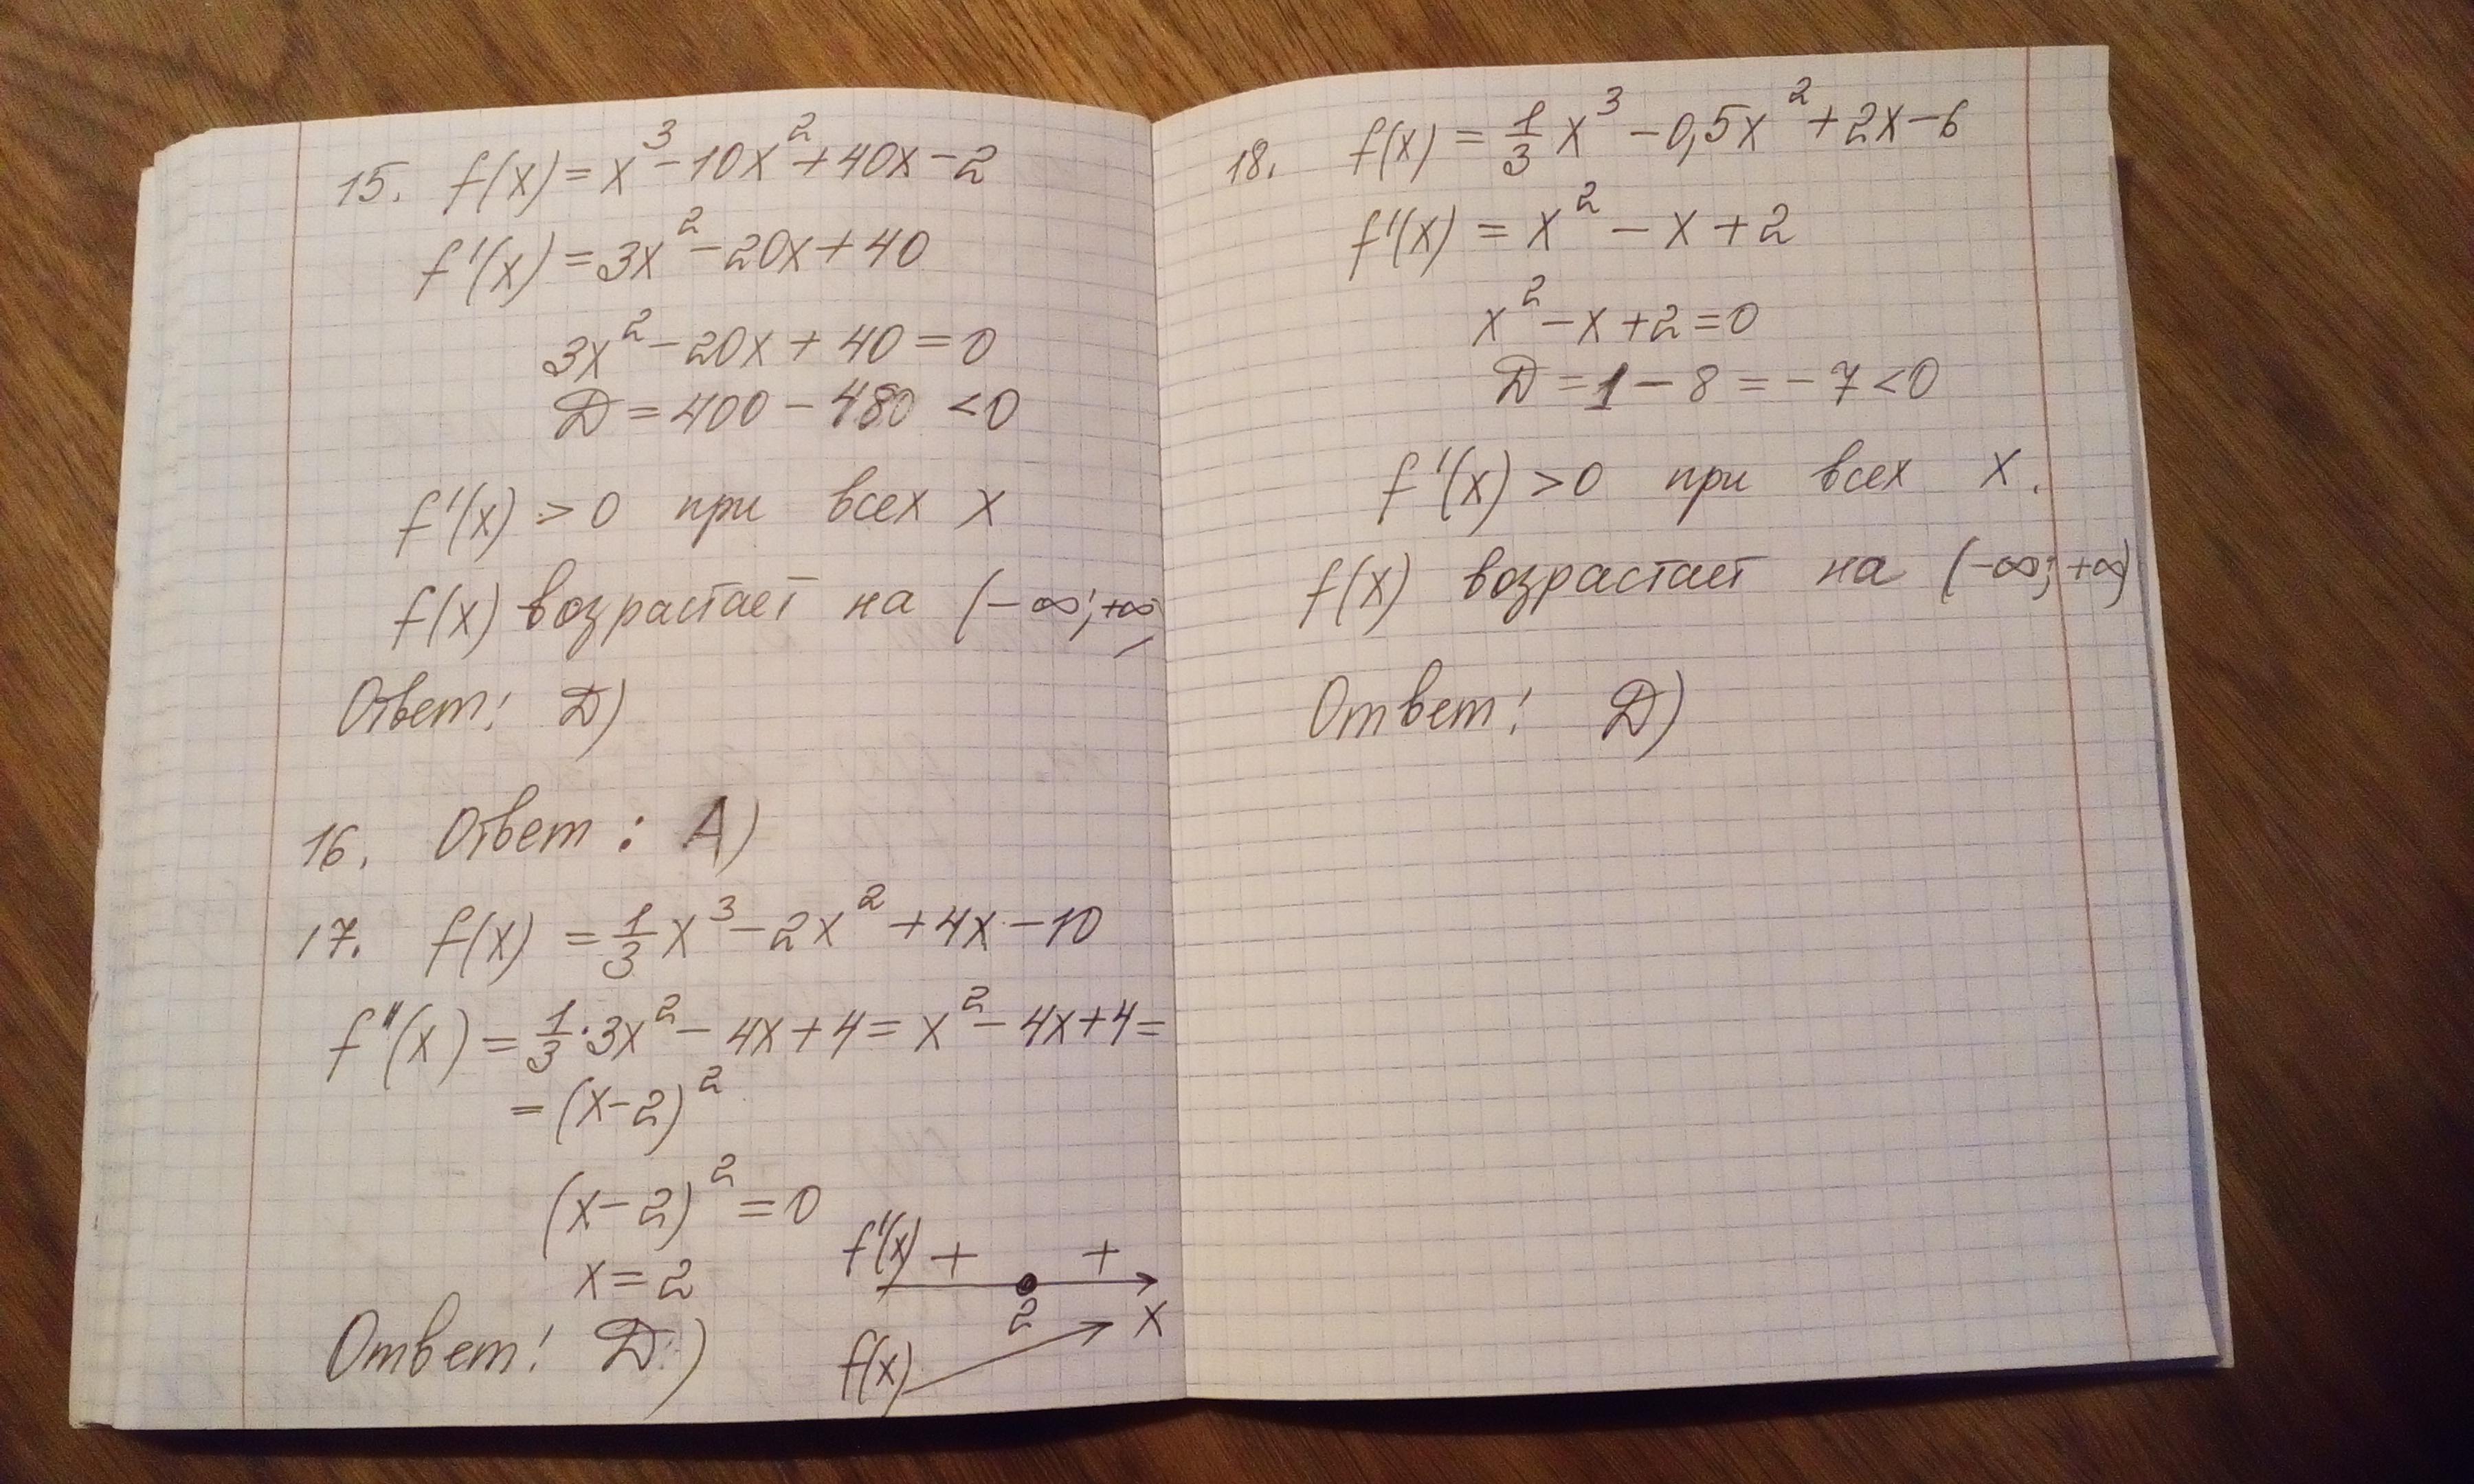 15. f(x) = x³ - 10x² + 40x - 2
f'(x) = 3x² - 20x + 40
3x² - 20x + 40 = 0
D = 400 - 480 < 0
f'(x) > 0 при всех x
f(x) возрастает на (-∞; +∞)
Ответ: D)
16. Ответ: A)
17. f(x) = 1/3 x³ - 2x² + 4x - 10
f"(x) = 1/3 · 3x² - 4x + 4 = x² - 4x + 4 =
= (x-2)²
(x-2)² = 0
x = 2
f'(x) + +
2 x
f(x)
Ответ: D)
18. f(x) = 1/3 x³ - 0,5x² + 2x - 6
f'(x) = x² - x + 2
x² - x + 2 = 0
D = 1 - 8 = -7 < 0
f'(x) > 0 при всех x.
f(x) возрастает на (-∞; +∞)
Ответ: D)